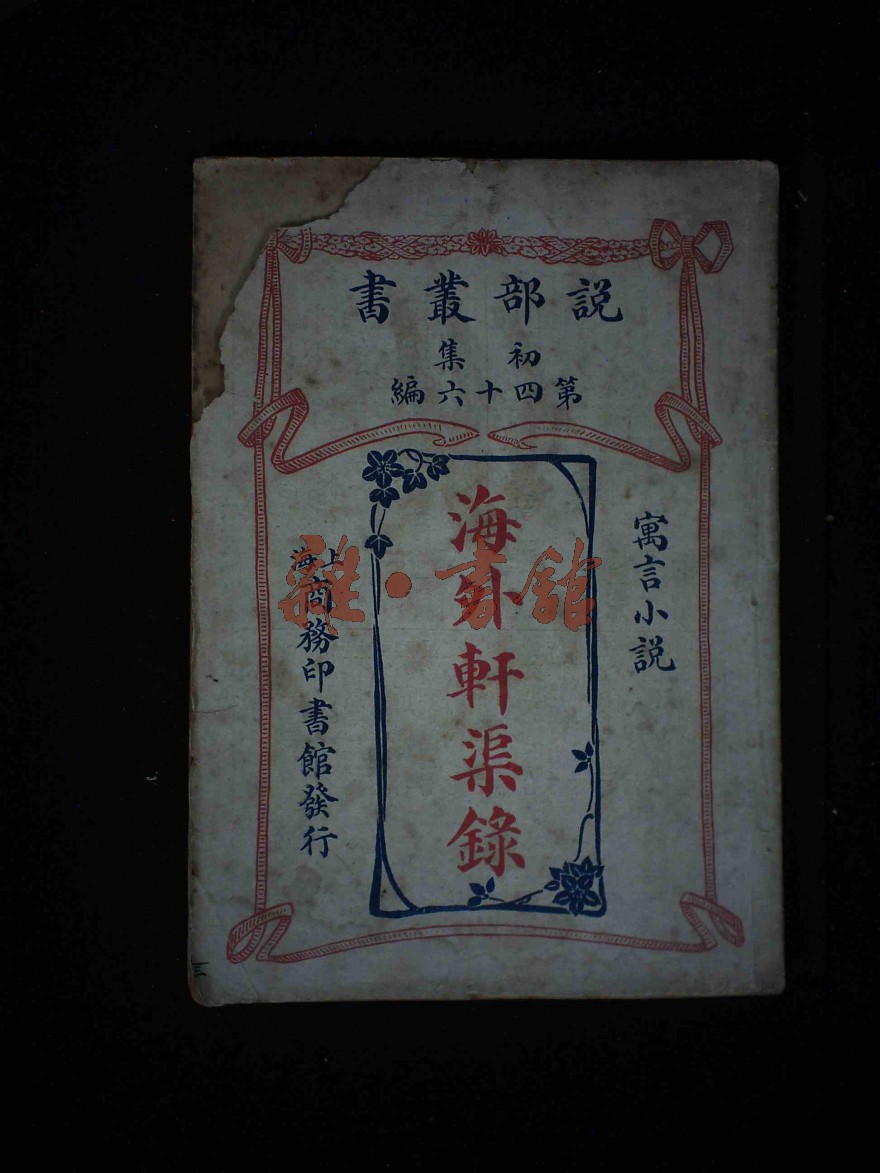 説部叢書
初集
第四十六編
寓言小説
海外軒渠錄
上海商務印書館發行
雜·書館